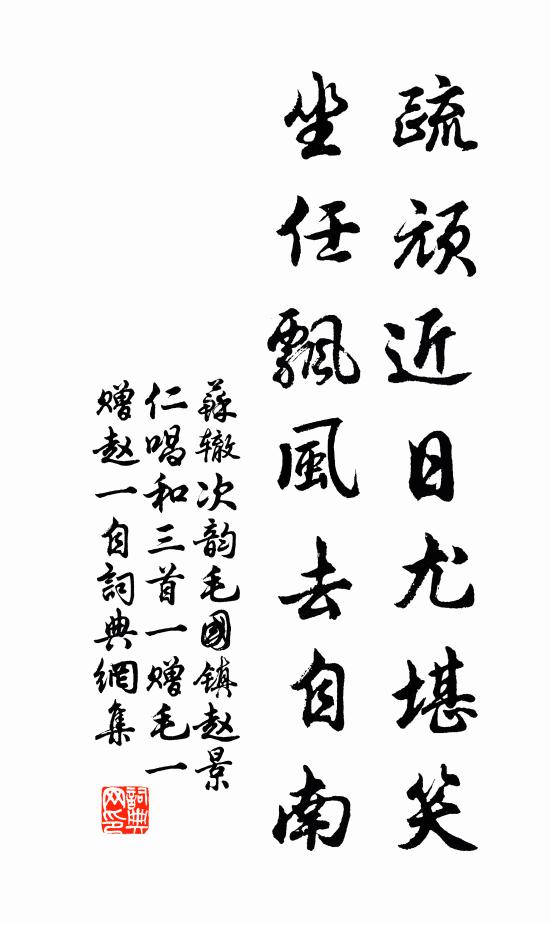 疏顽近日尤堪笑
坐任飄風去自南
蘇辙次韵毛國镇赵景
仁唱和三首一赠毛一
赠赵一自詞典網集
詞典網印